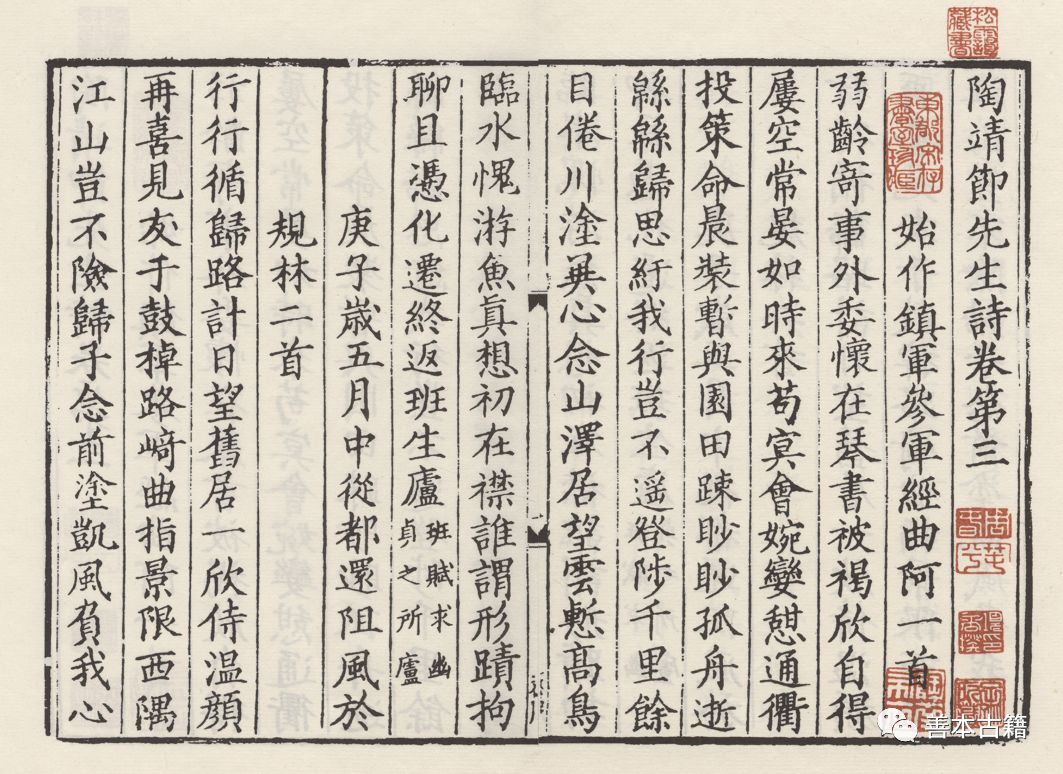 陶靖節先生詩卷第三
始作鎮軍參軍經曲阿一首
弱齡寄事外委懷在琴書被褐欣自得
屢空常晏如時來苟冥會婉孌憩通衢
投策命晨裝暫與園田踈眇眇孤舟逝
緜緜歸思紆我行豈不遥登陟千里餘
目倦川塗異心念山澤居望雲慙髙鳥
臨水愧游魚眞想初在襟誰謂形蹟拘
聊且憑化遷終返班生廬班賦求幽貞之所廬
庚子歲五月中從都還阻風於
規林二首
行行循歸路計日望舊居一欣侍温顔
再喜見友于鼓棹路崎曲指景限西隅
江山豈不險歸子念前塗凱風負我心
善本古籍